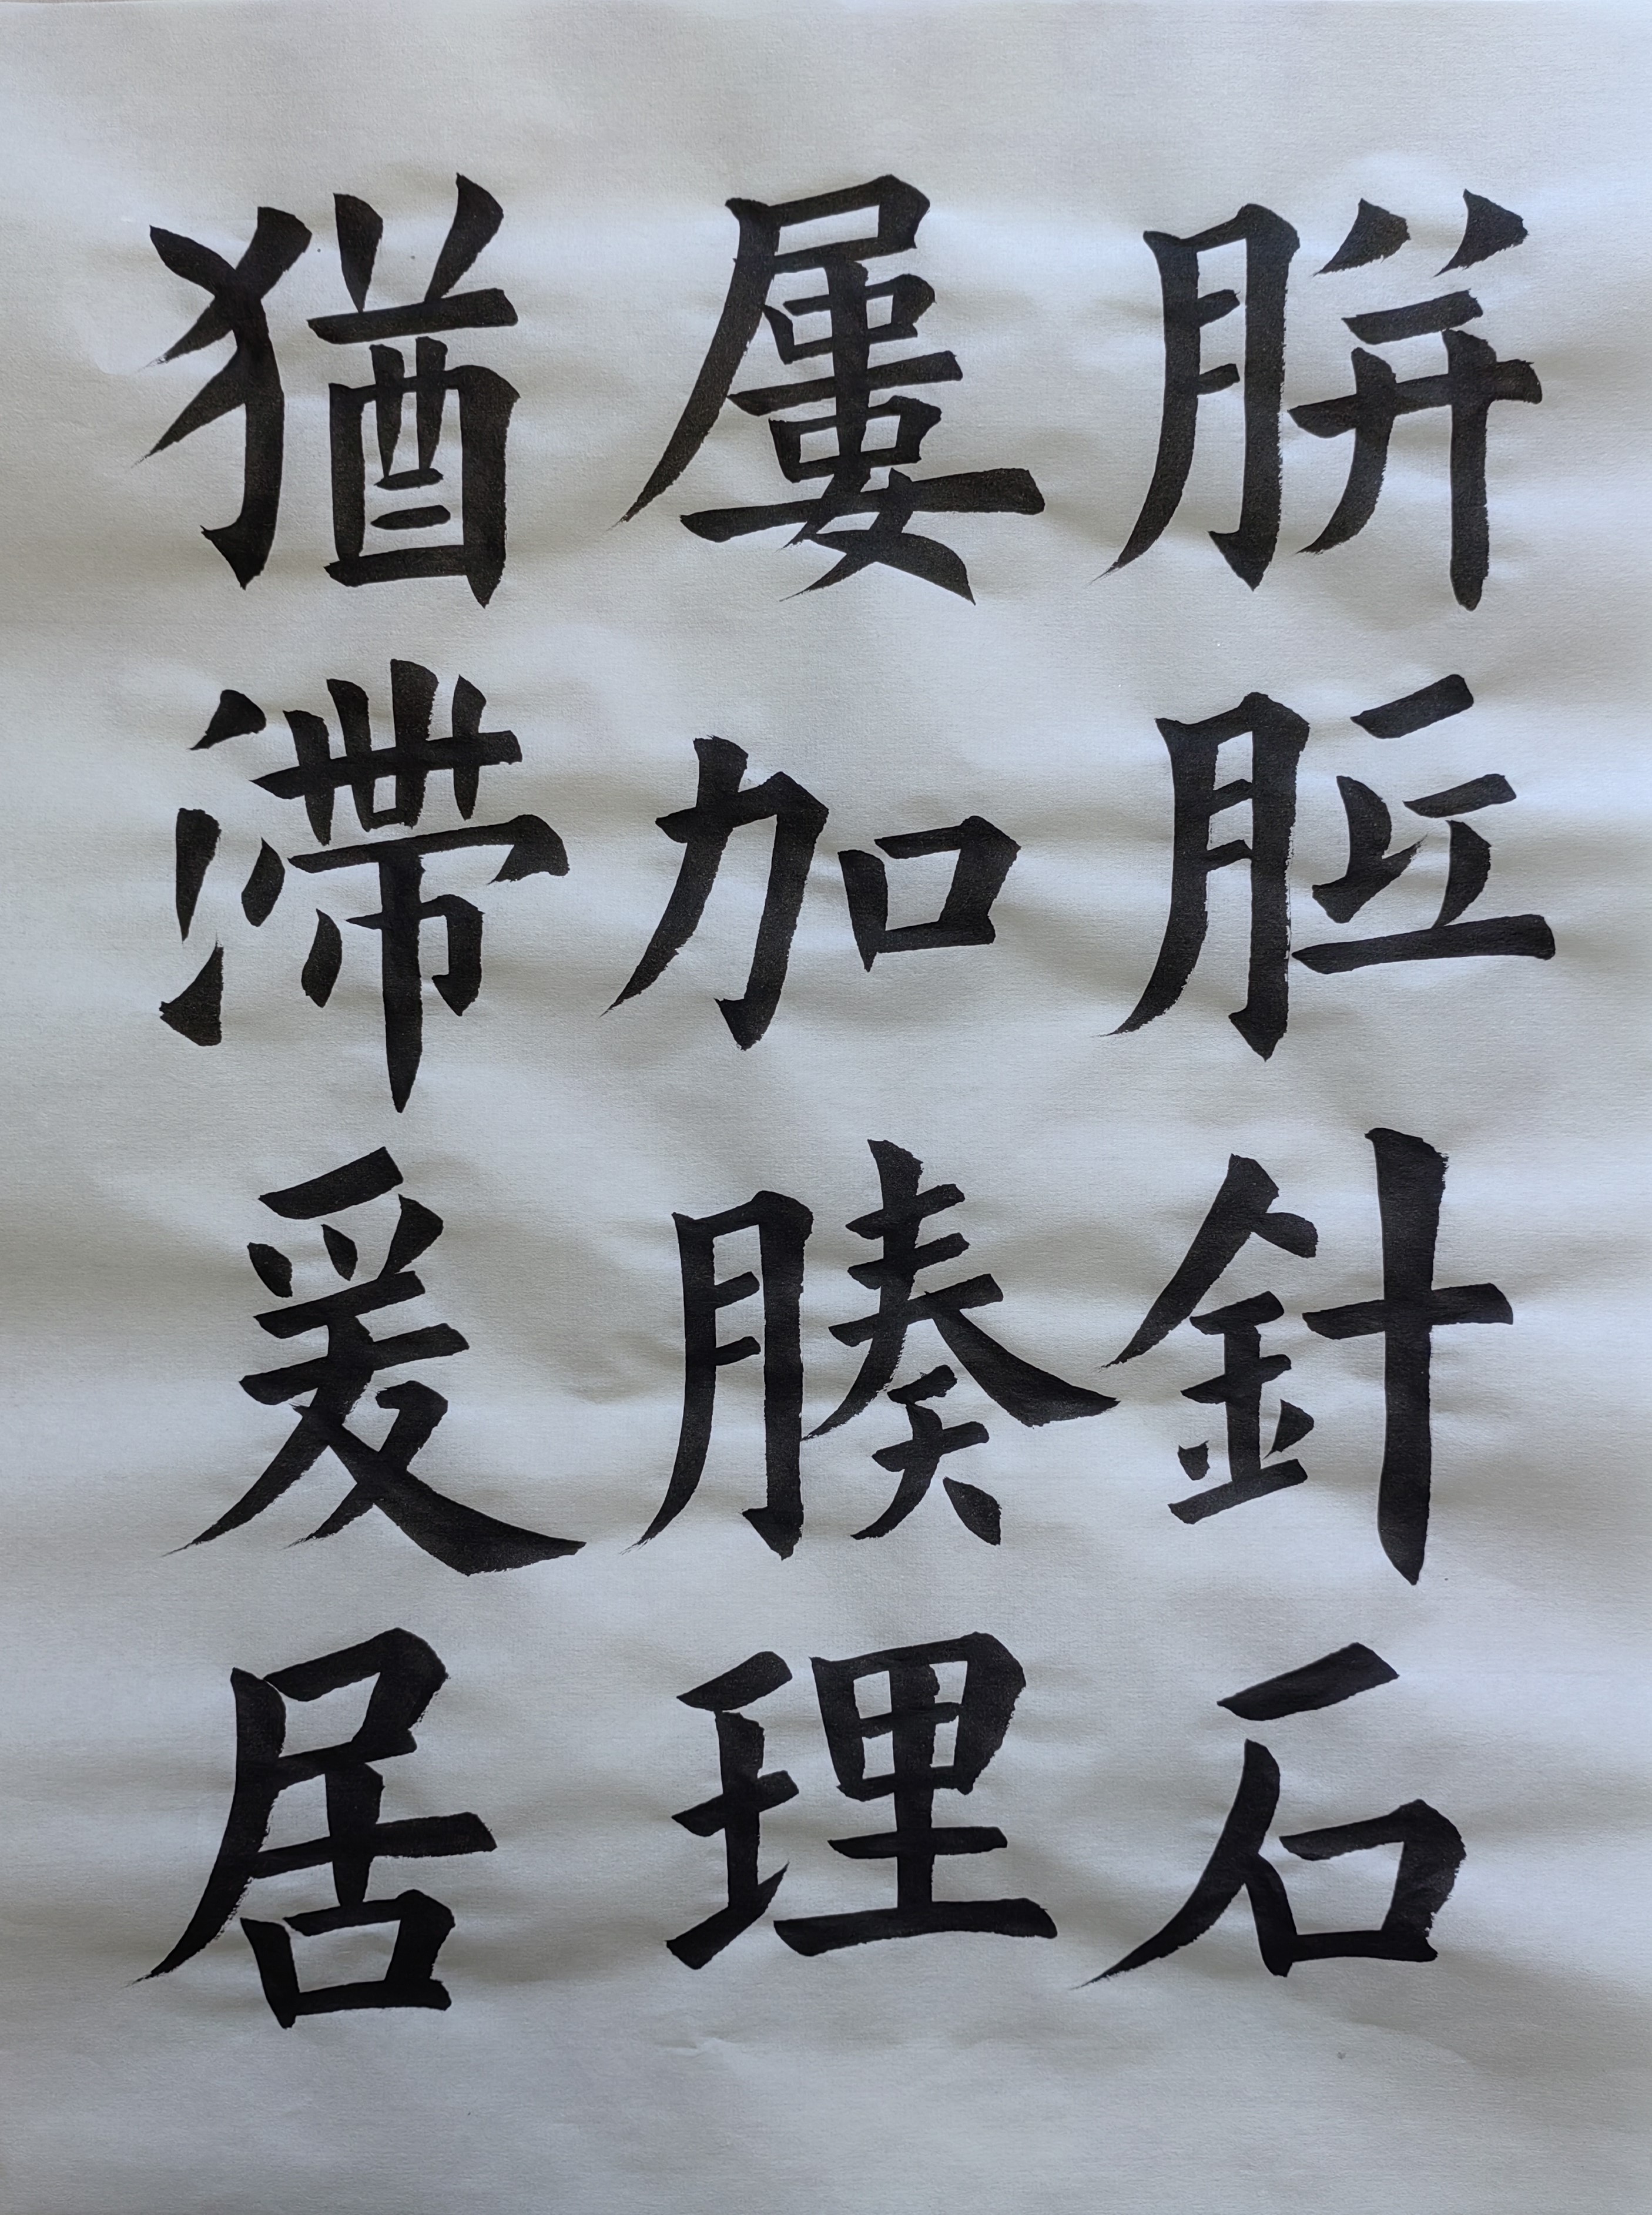 胼胝針石
屢加腠理
猶滯爰居